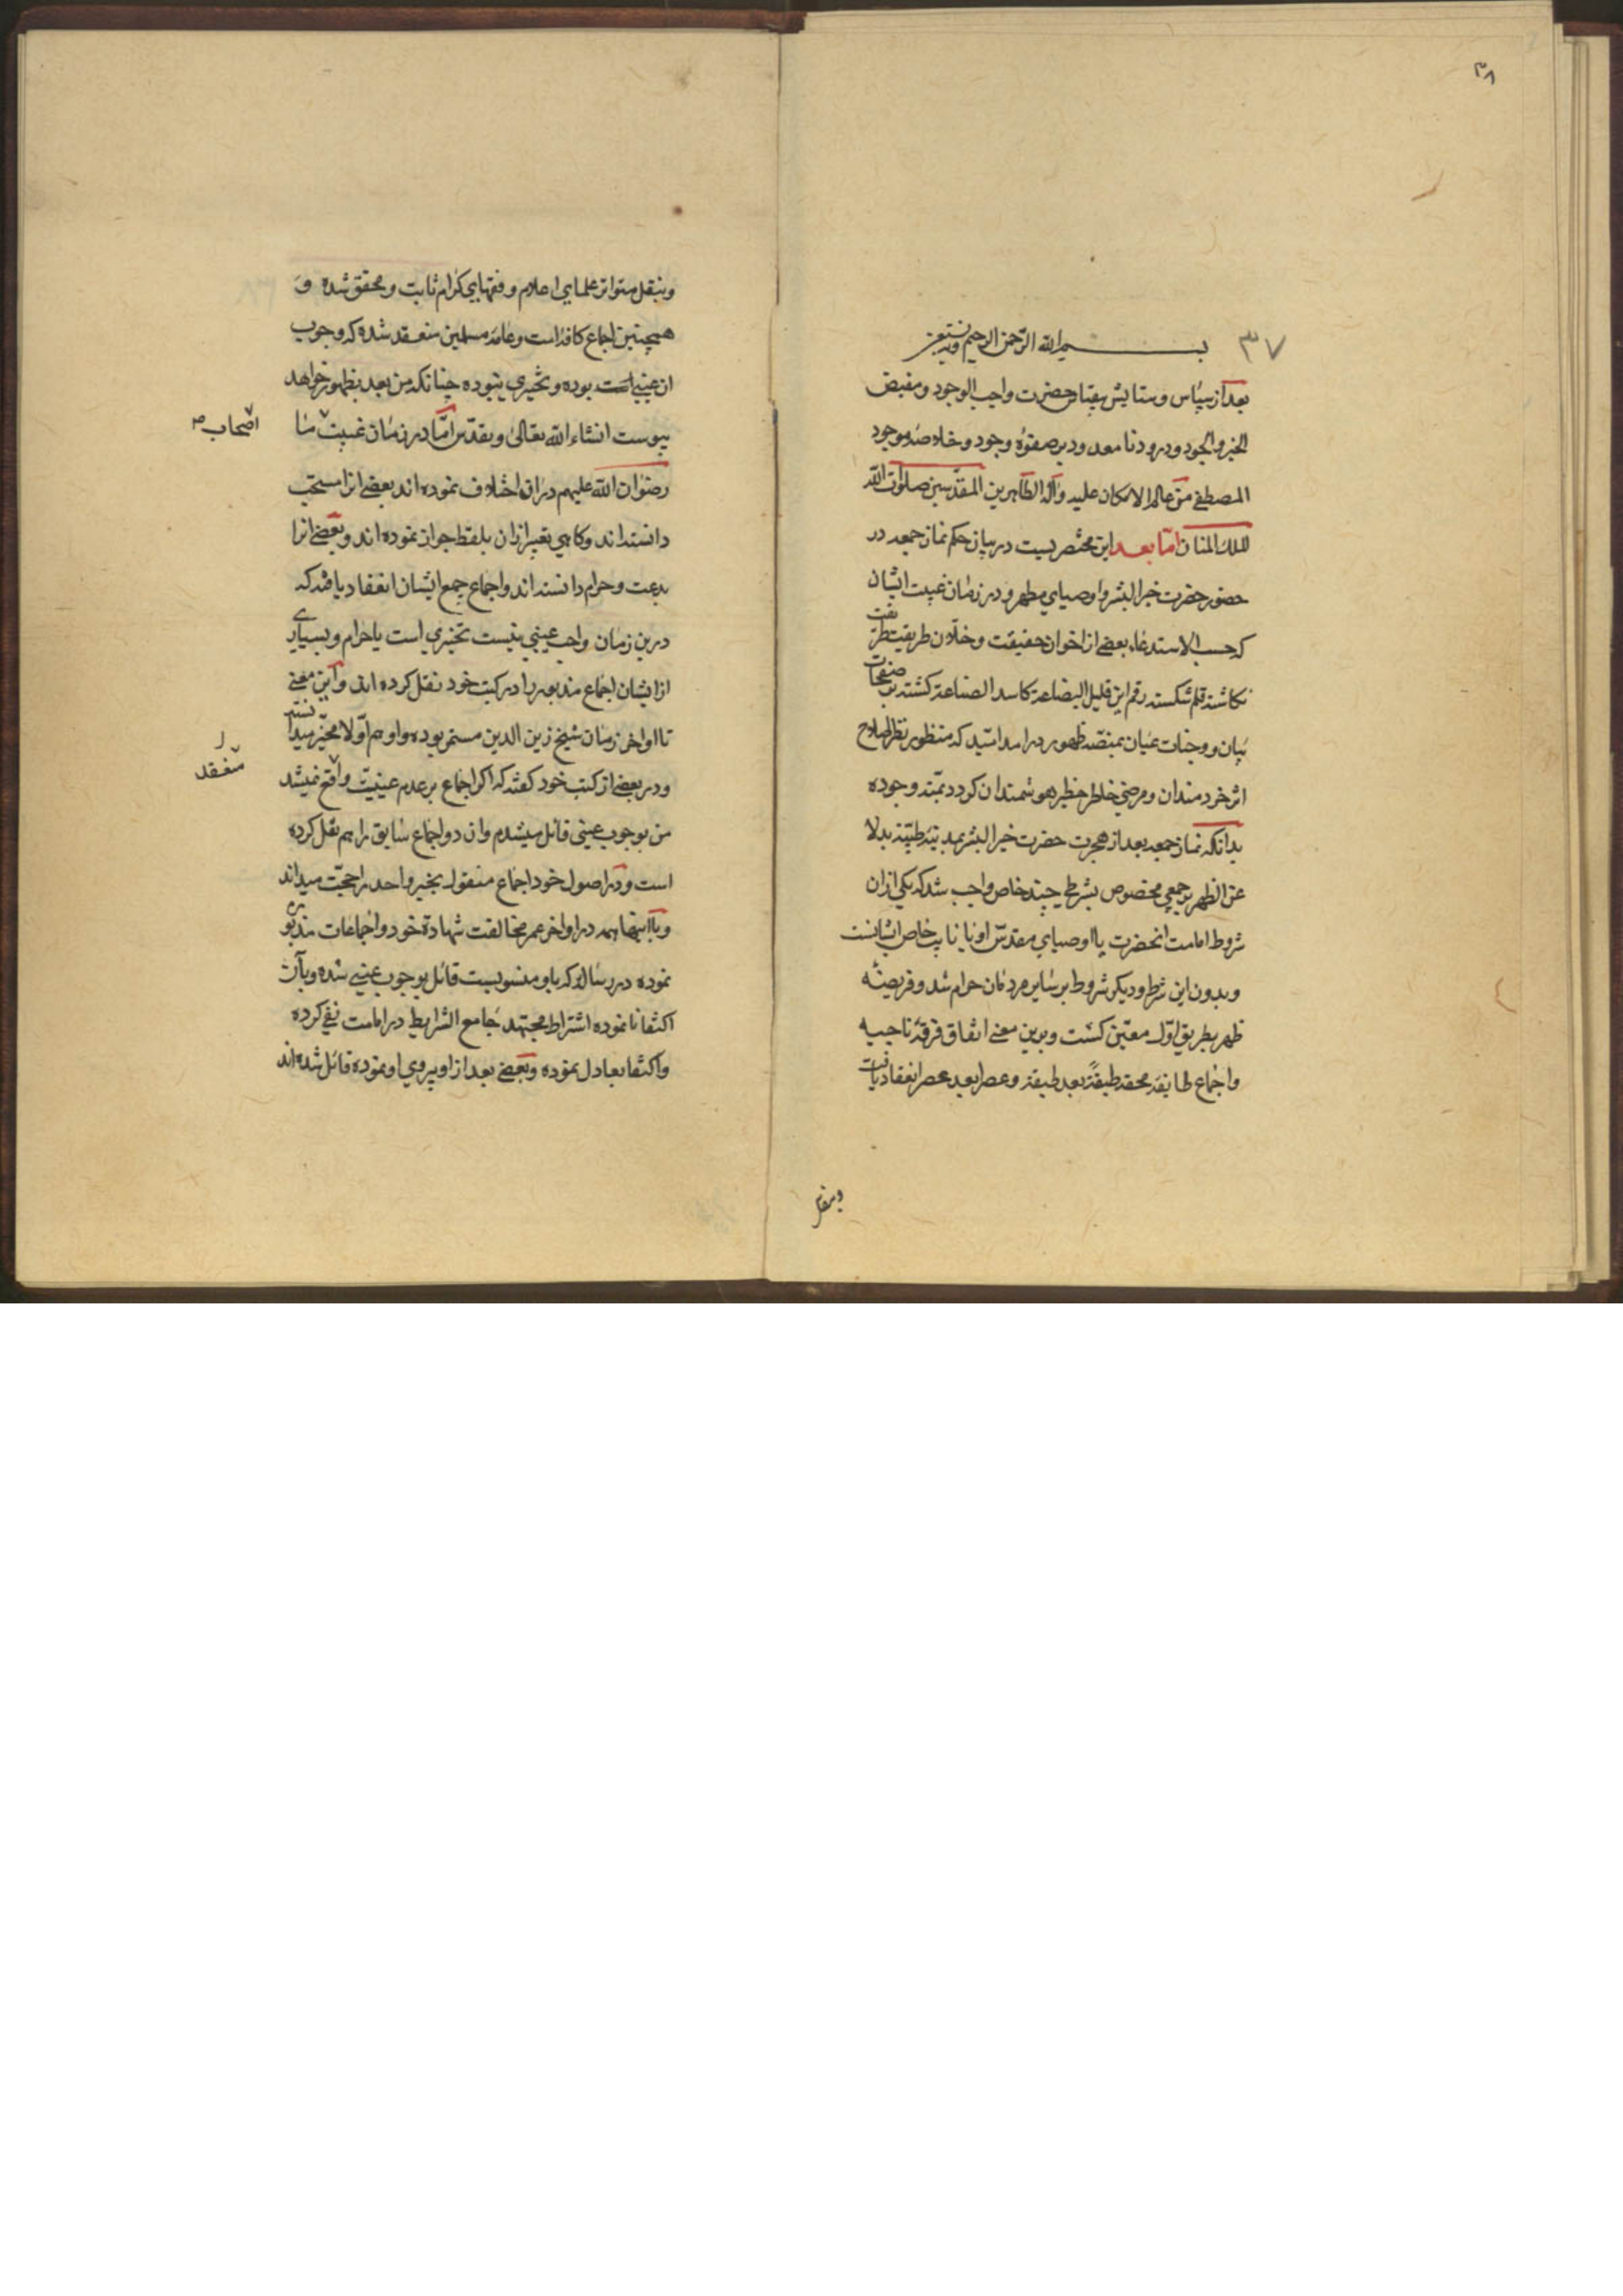 ۳۸
۳۷
بسم الله الرحمن الرحیم وبه نستعین
بعد از سپاس و ستایش بیقیاس حضرت واجب الوجود و مفیض
الخیر والجود و درود نامعدود بر صفوهٔ وجود و خلاصهٔ موجود
المصطفی من عالم الامکان علیه وآله الطاهرین المقدسین صلوات الله
الملک المنان اما بعد این مختصریست در بیان حکم نماز جمعه در
حضور حضرت خیر البشر و اوصیای مطهر و در زمان غیبت ایشان
که حسب الاستدعاء بعضی از اخوان حقیقت و خلان طریقت طرز
نکاشته قلم شکسته رقم این قلیل البضاعة کاسد الصناعة کشته بر صفحات
بیان و وجنات عیان بمنصه ظهور درامد امید که منظور نظر اصلاح
اثر خردمندان و مرضی خاطر خطیر هوشمندان کردد بمنه وجوده
بدانکه نماز جمعه بعد از هجرت حضرت خیر البشر بمدینه طیبه بدلا
عن الظهر بر جمعی مخصوص بشرطی چند خاص واجب شد که یکی ازان
شروط امامت انحضرت یا اوصیای مقدس او یا نایب خاص ایشانست
و بدون این شرط و دیکر شروط بر سایر مردمان حرام شد و فریضهٔ
ظهر بطریق اول معین کشت و برین معنی اتفاق فرقهٔ ناجیه
و اجماع طایفه محقه طبقةً بعد طبقة و عصرا بعد عصر انعقاد یافت
و بنقل
و بنقل متواتر علمای اعلام و فقهای کرام ثابت و محقق شده و
همچنین اجماع کافهٔ امت و عامهٔ مسلمین منعقد شده که وجوب
ان عینی است بوده و تخیری نبوده چنانکه من بعد بظهور خواهد
پیوست انشاء الله تعالی و تقدس اما در زمان غیبت ما
اصحاب
رضوان الله علیهم دران اختلاف نموده اند بعضی انرا مستحب
دانسته اند و کاهی تعبیر ازان بلفظ جواز نموده اند و بعضی انرا
بدعت و حرام دانسته اند و اجماع جمع ایشان انعقاد یافته که
درین زمان واجب عینی نیست تخیری است یا حرام و بسیاری
از ایشان اجماع مذبور را در کتب خود نقل کرده اند و این معنی
تا اواخر زمان شیخ زین الدین مستمر بوده و او هم اولا مخیر میدانسته
و در بعضی از کتب خود کفته که اکر اجماع بر عدم عینیت واقع نمیشد
منعقد
من بوجوب عینی قائل میشدم و ان دو اجماع سابق را هم نقل کرده
است و در اصول خود اجماع منقول بخبر واحد را حجت میداند
و با اینها همه در اواخر عمر مخالفت شهادة خود و اجماعات مذبوره
نموده در رساله که باو منسوبست قائل بوجوب عینی شده و بآن
اکتفا نا نموده اشتراط مجتهد جامع الشرایط در امامت نفی کرده
و اکتفا بعادل نموده و بعضی بعد از او پیروی او نموده قائل شده اند